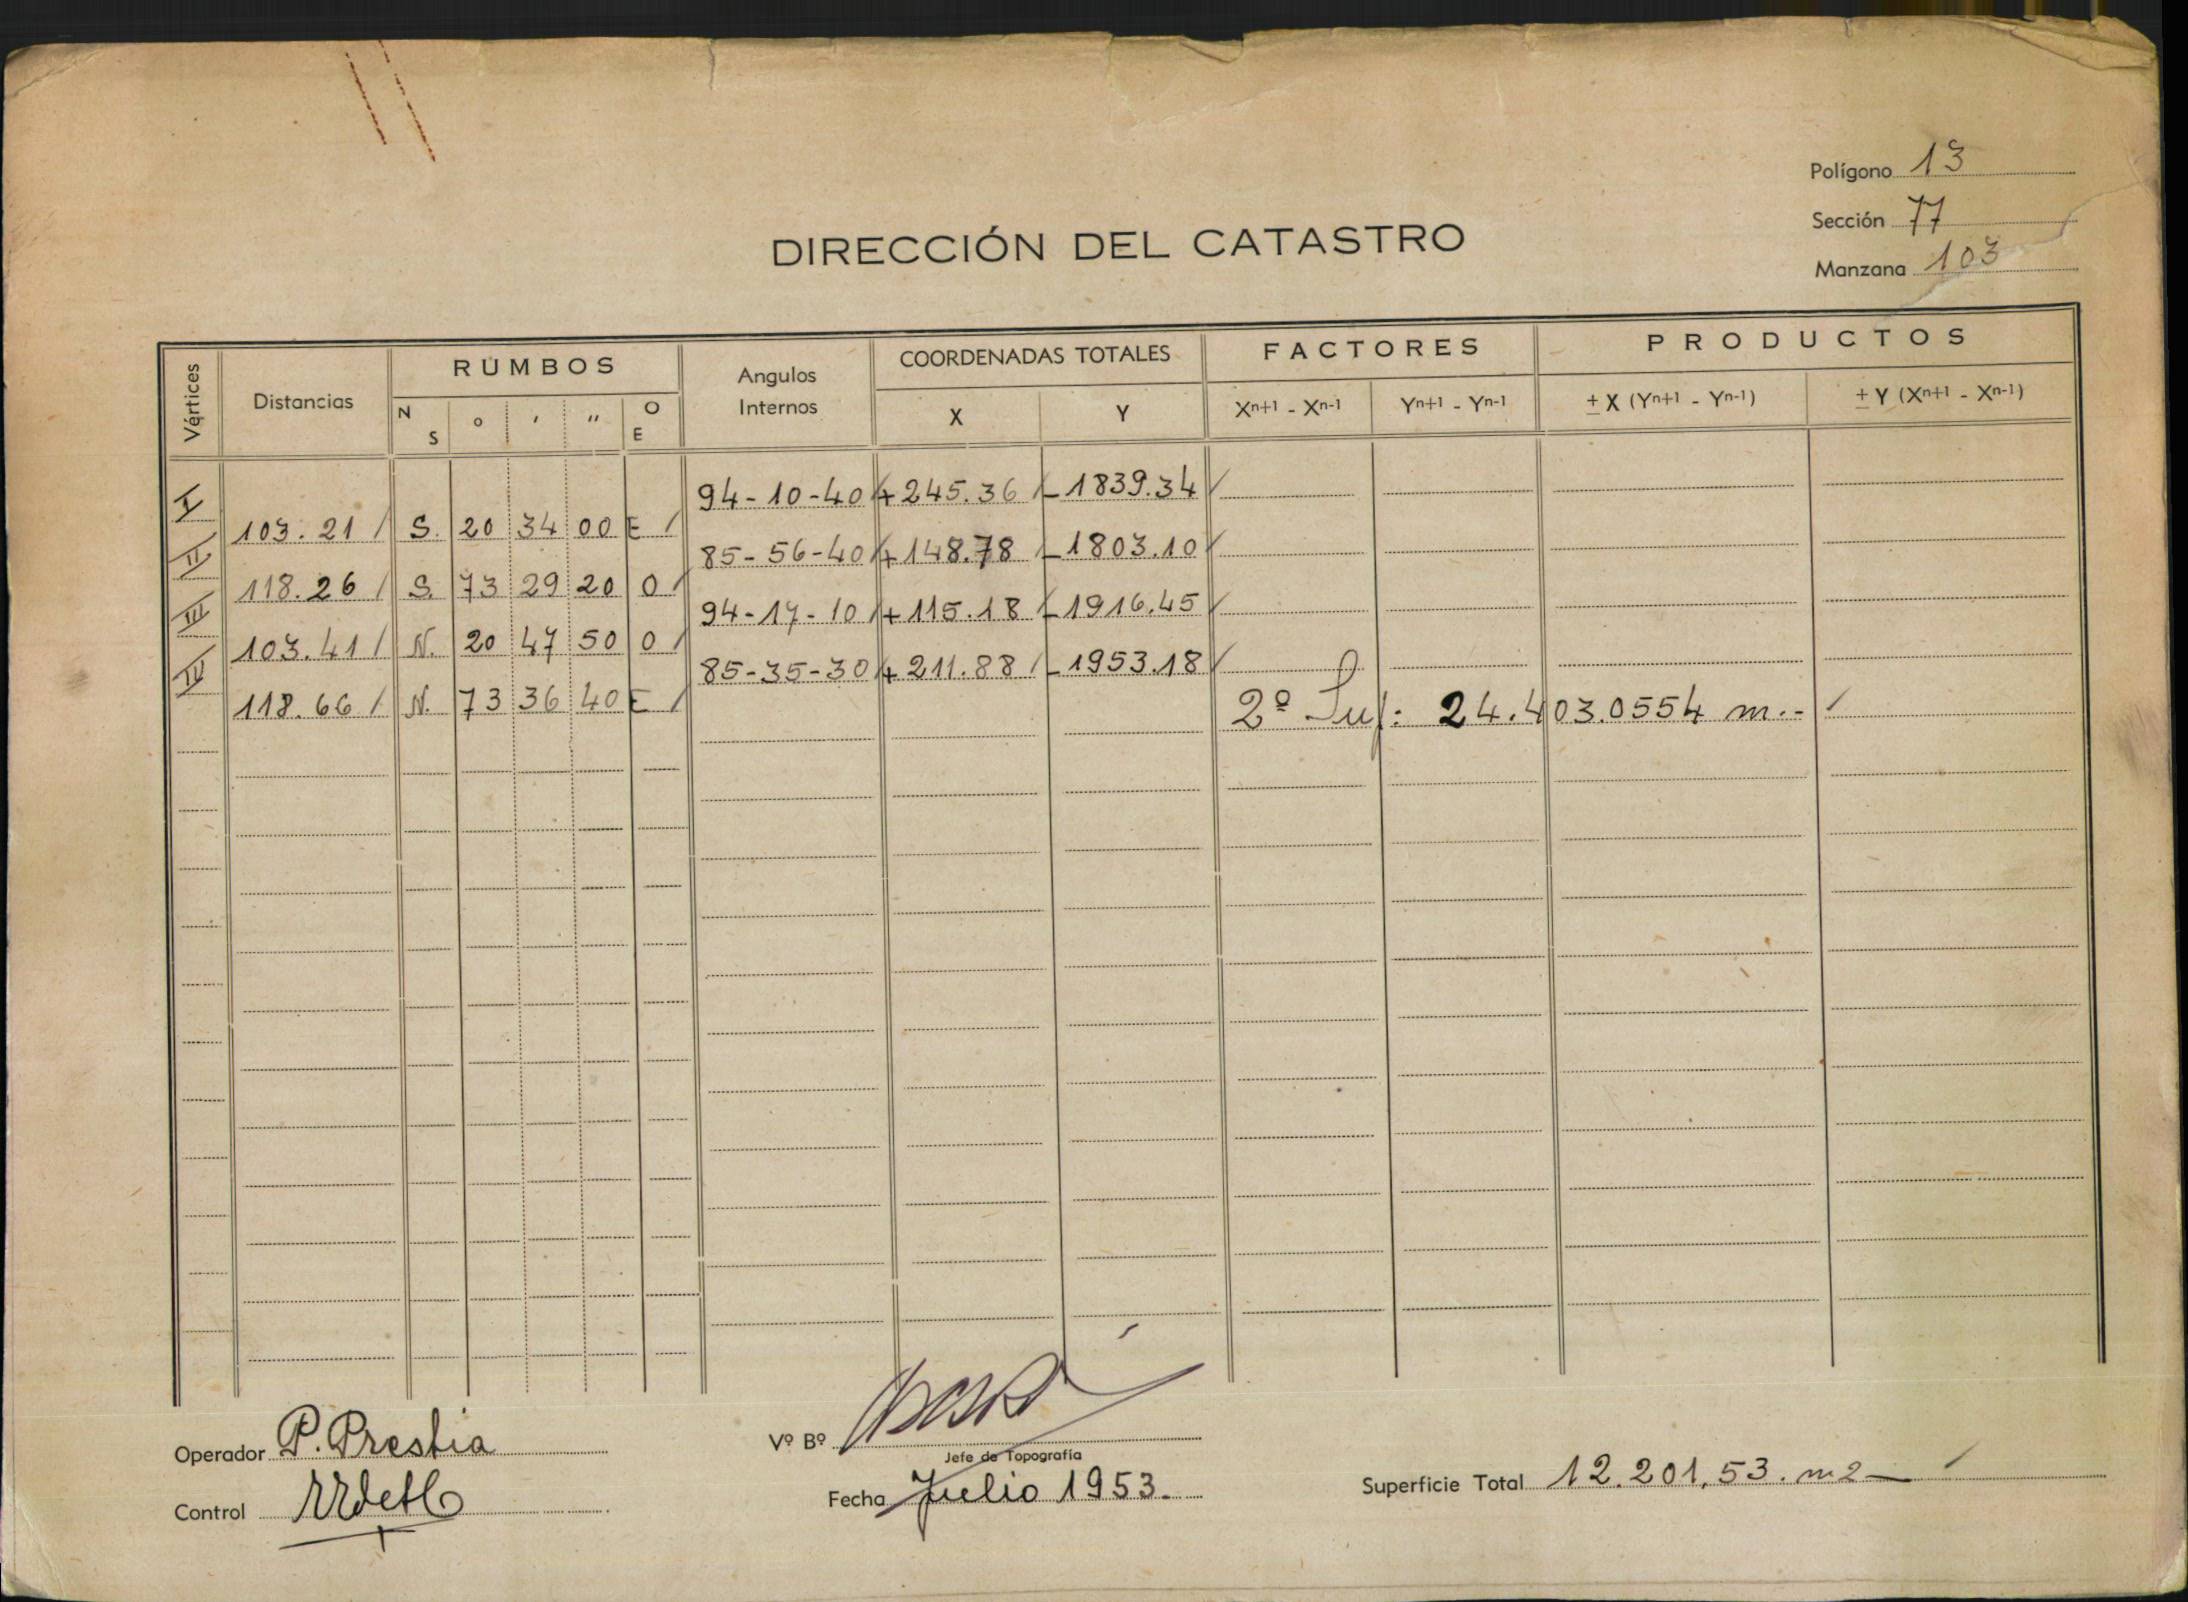 Polígono 13
Sección 77
Manzana 103
DIRECCIÓN DEL CATASTRO
Vértices Distancias RUMBOS Angulos Internos COORDENADAS TOTALES FACTORES PRODUCTOS
N S ° ' " O E X Y Xn+1 - Xn-1 Yn+1 - Yn-1 ± X (Yn+1 - Yn-1) ± Y (Xn+1 - Xn-1)
I 94-10-40 +245.36 -1839.34
103.21 S. 20 34 00 E
II 85-56-40 +148.78 -1803.10
118.26 S. 73 29 20 O
III 94-17-10 +115.18 -1916.45
103.41 N. 20 47 50 O
IV 85-35-30 +211.88 -1953.18
118.66 N. 73 36 40 E
2º Sup: 24.403.0554 m.-
Operador P. Prestia
Vº Bº
Jefe de Topografía
Control
Fecha Julio 1953.
Superficie Total 12.201,53. m2